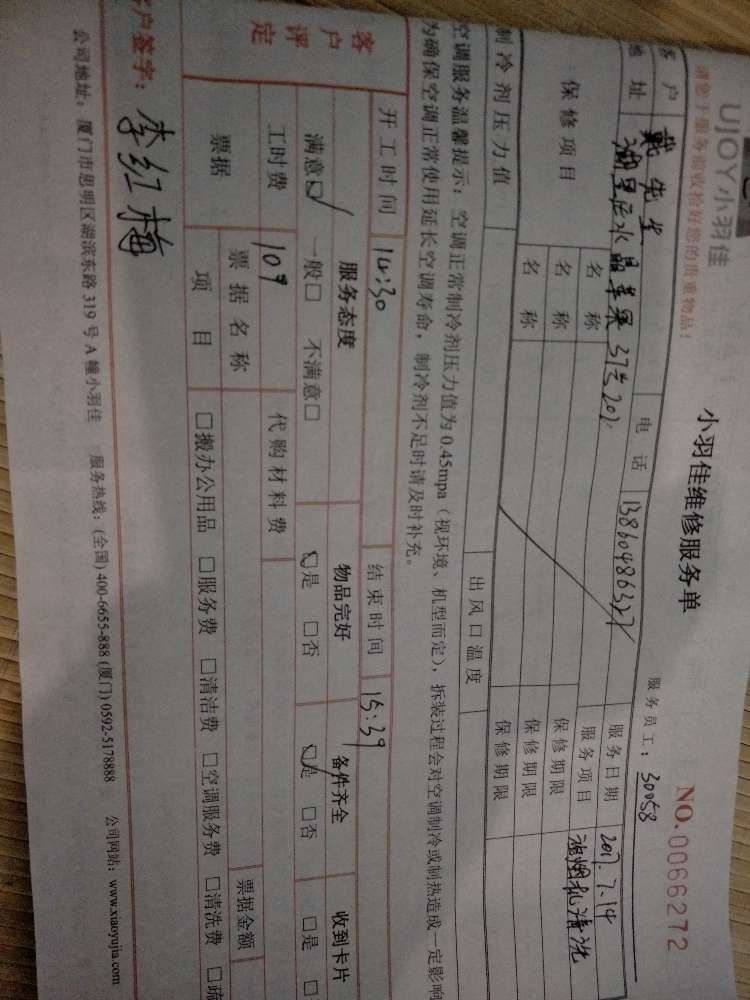 UJOY小羽佳
小羽佳维修服务单
NO.0066272
请您于服务前收拾好您的贵重物品！
服务员工：30058
客户 戴先生 电话 服务日期 2017.7.14
地址 湖里区水晶 服务项目 油烟机清洗
保修项目 名称 保修期限
名称 保修期限
名称 保修期限
制冷剂压力值 出风口温度
空调服务温馨提示：空调正常制冷剂压力值为0.45mpa（视环境、机型而定），拆装过程会对空调制冷或制热造成一定影响
为确保空调正常使用延长空调寿命，制冷剂不足时请及时补充。
开工时间 14:30 结束时间 15:39
客户评定 服务态度 物品完好 备件齐全 收到卡片
满意☑ 一般□ 不满意□ ☑是 □否 ☑是 □否 □是 □
工时费 109 代购材料费
票据 票据名称 票据金额
项目 □搬办公用品 □服务费 □清洁费 □空调服务费 □清洗费 □疏
客户签字：李红梅
公司地址：厦门市思明区湖滨东路319号A幢小羽佳 服务热线：(全国) 400-6655-888 (厦门) 0592-5178888 公司网站：www.xiaoyujia.com